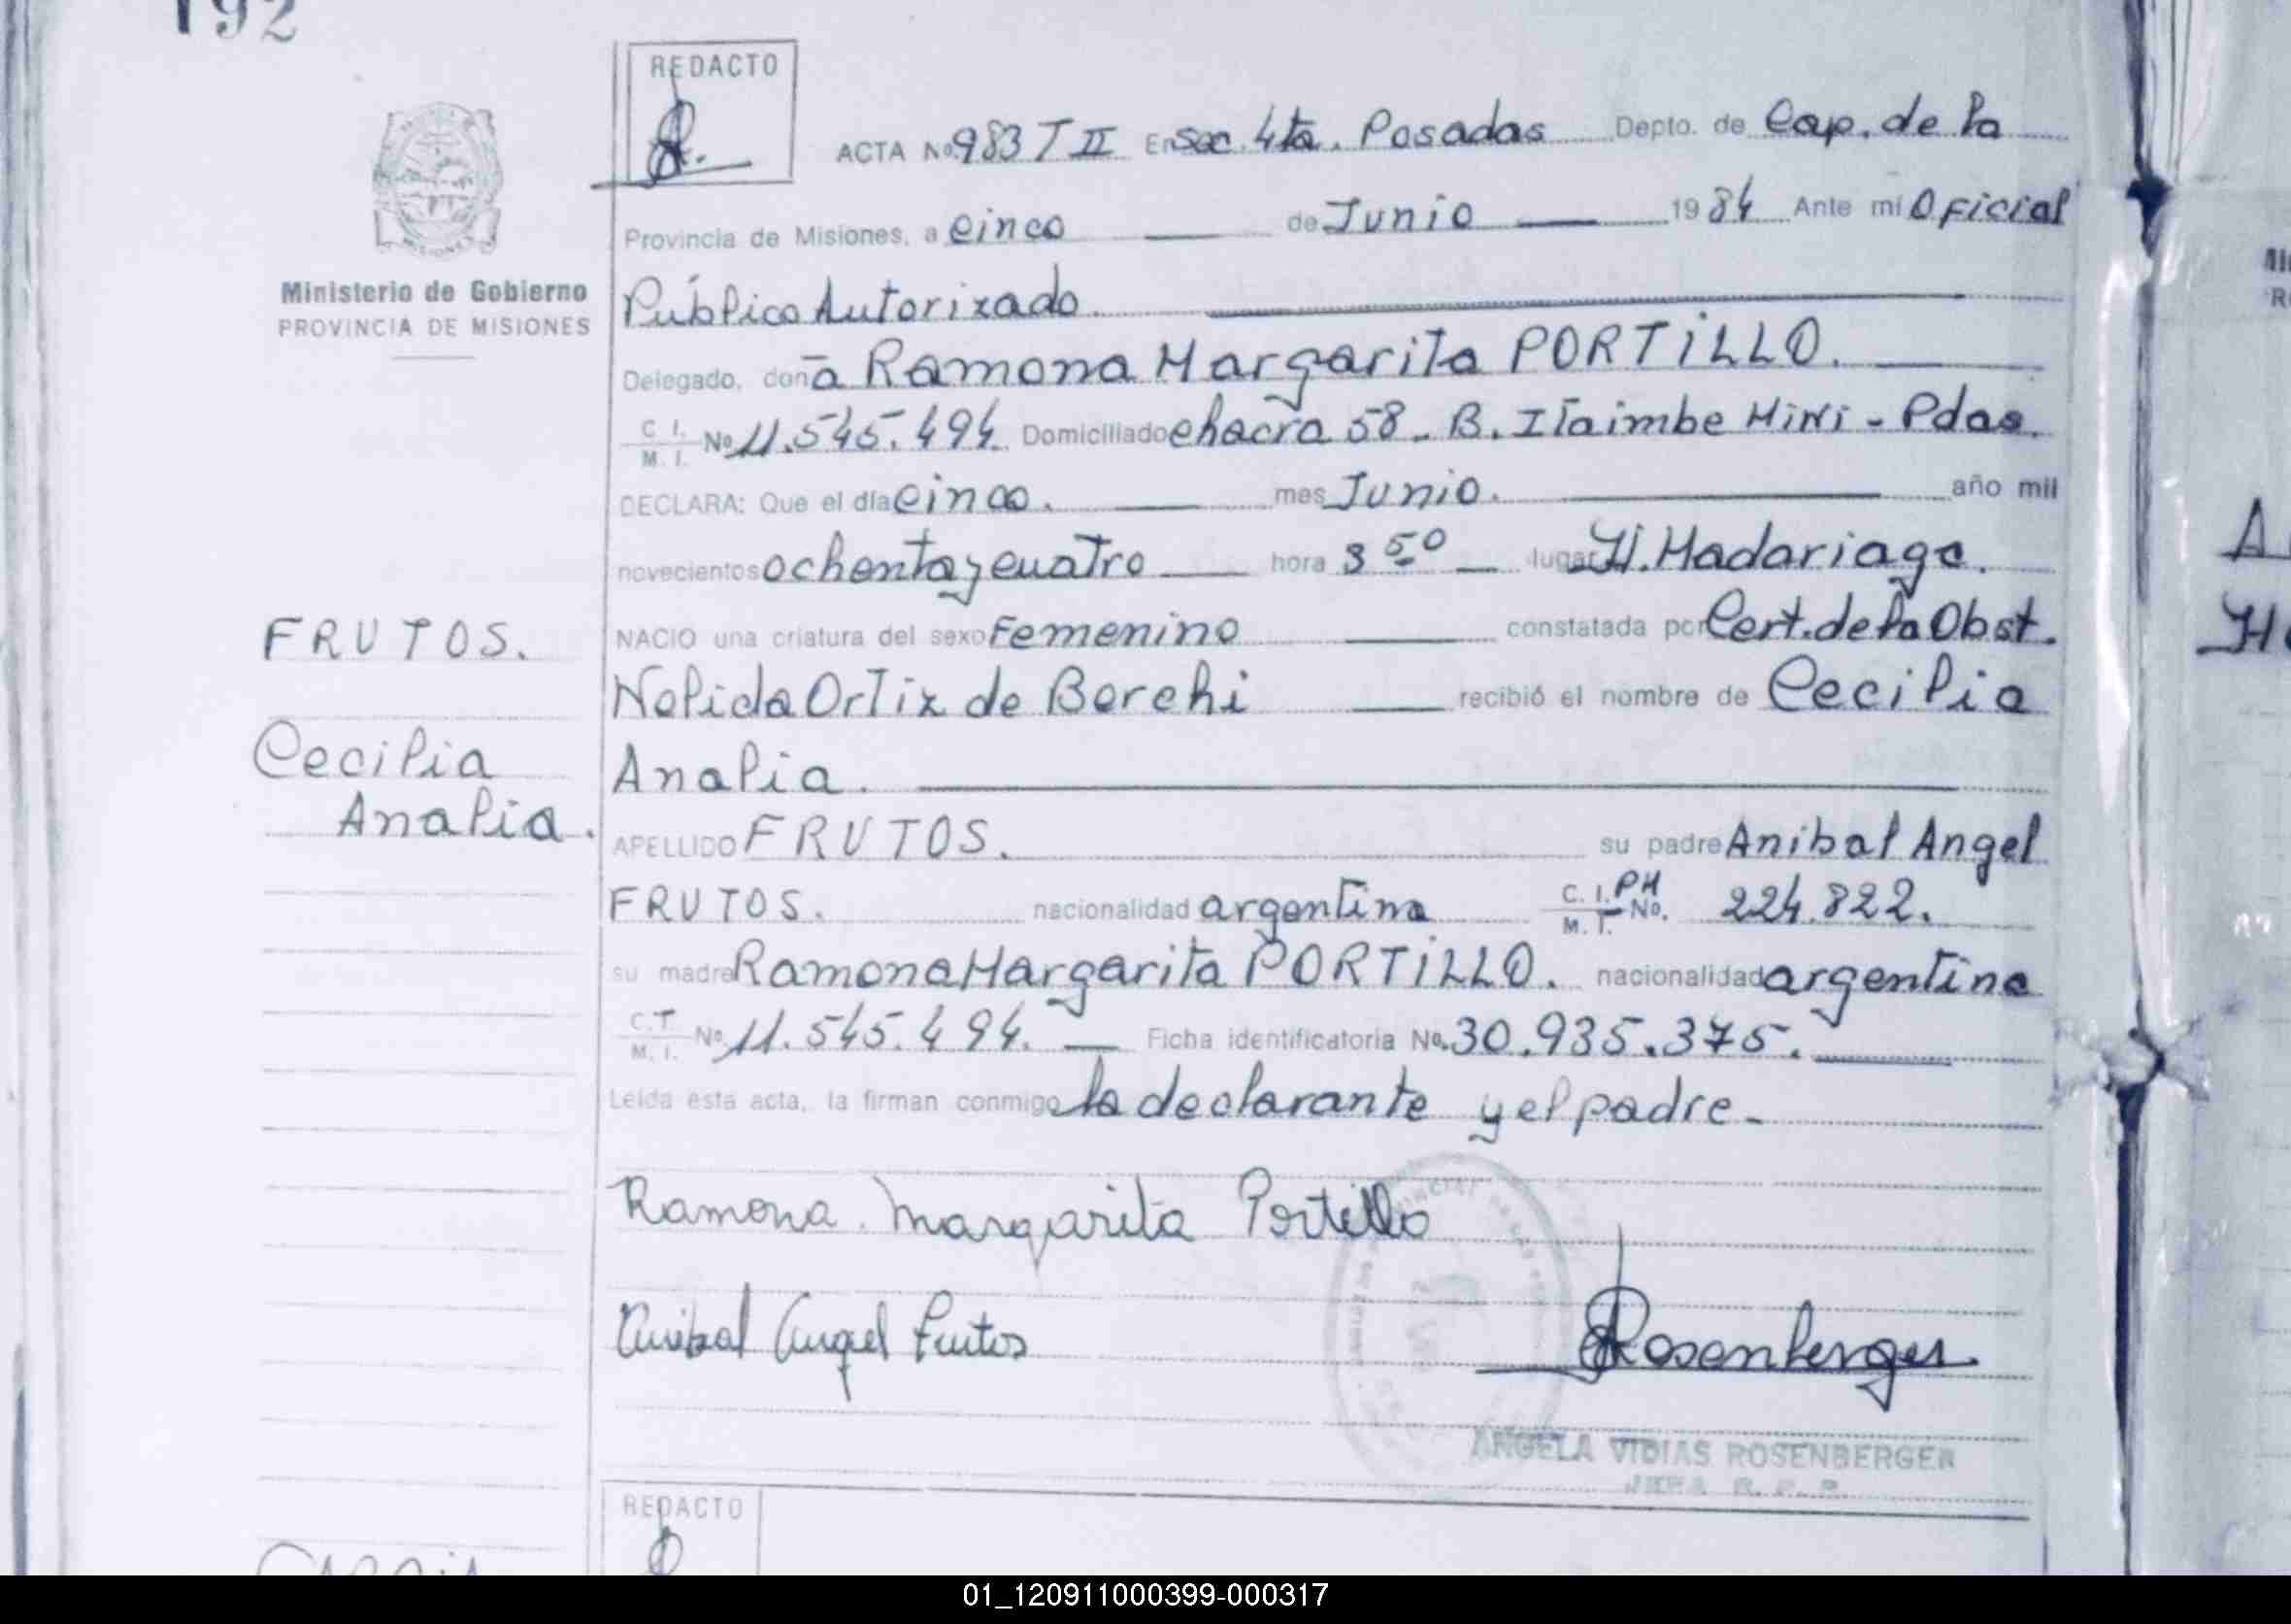 192
REDACTO
ACTA No. 983 T II En Sec. 4ta. Posadas Depto. de Cap. de la
Provincia de Misiones, a cinco de Junio 1984 Ante mí Oficial
Ministerio de Gobierno
PROVINCIA DE MISIONES
Público Autorizado
Delegado, doña Ramona Margarita PORTiLLO.
C. I. M. I. No 11.545.494. Domiciliado chacra 58 - B. Itaimbe Mini - Pdas.
DECLARA: Que el día cinco. mes Junio. año mil
novecientos ochenta y cuatro hora 3 50 lugar H. Madariaga.
NACIO una criatura del sexo Femenino constatada por Cert. de la Obst.
Nelida Ortiz de Borchi recibió el nombre de Cecilia
Analia.
APELLIDO FRUTOS. su padre Anibal Angel
FRUTOS. nacionalidad argentina C. I. M. I. PM No. 224.822.
su madre Ramona Margarita PORTiLLO. nacionalidad argentina
C. I. M. I. No 11.545.494. Ficha identificatoria No. 30.935.375.
Leída esta acta, la firman conmigo la declarante y el padre -
FRUTOS.
Cecilia
Analia.
Ramona Margarita Portillo
Anibal Angel Frutos
Rosenberger
ANGELA VIDIAS ROSENBERGER
JEFA R. P. P.
REDACTO
01_120911000399-000317